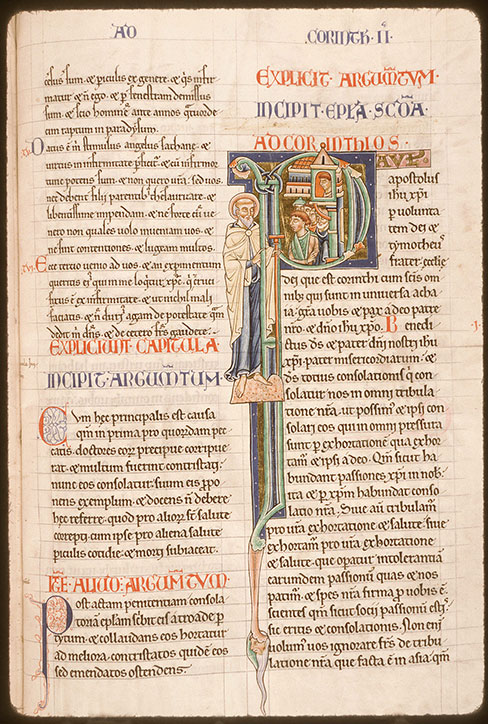 AD
CORINTH · II ·
celus sum · & piculis ex genere · & q̄s infir
matur & n̄ ego · & p̄ fenestram demissus
sum · & scio homine ante annos quatuorde
cim raptum in paradysum ·
Datus ē m̄ stimulus angelus sathane · &
uirtus in infirmitate p̄ficit · & cū infirmor
tunc potens sum · & non quero ur̄a · sed uos ·
nec debent filii parentib; thesaurizare · &
libentissime impendam · & ne forte cū ue
nero non quales uolo inueniam uos · &
ne sint contentiones · & lugeam multos ·
Ecce tercio uenio ad uos · & an experimentum
queritis ei' qui in me loquit' xp̄c · q' cruci
fixus ē ex infirmitate · & ut nichil mali
faciatis · & n̄ durī agam de potestate qm̄
dedit m̄ dn̄s · & de cetero fr̄s gaudete ·
EXPLICIUNT CAPITULA
INCIPIT · ARGUMTUM ·
Cum hec principalis est causa
qm̄ in prima pro quordam pec
catis · doctores cor' precipue corripue
rat · & multum fuerint contristati ·
nunc eos consolatur · suum eis p̄po
nens exemplum · & docens n̄ debere
hec referre · quod pro alior' st̄ salute
correpti · cum ipse pro aliena salute
piculis cotidie · & morti subiaceat ·
ITĒ ALIUD · ARGUMTUM ·
Post actam penitentiam consola
toriā eplam scribit eis a troade p̄
tytum · & collaudans eos hortatur
ad meliora · contristatos quidē eos
sed emendatos ostendens ·
EXPLICIT ARGUMTUM ·
INCIPIT · EPLA · SCDA ·
AD CORINTHIOS ·
PAUL'
apostolus
ihu xpi
p uolunta
tem dei &
tymotheus
frater · ecclīe
dei que est corinthi cum scīs om
nib; qui sunt in uniuersa acha
ia · gr̄a uobis & pax a deo patre
nr̄o · & dn̄o ihu xp̄o · Benedi
ctus ds̄ & pater dn̄i nostri ihu
xp̄i · pater misericordiarum · &
ds̄ totius consolationis q' con
solatur nos in omni tribula
tione nr̄a · ut possim' & ip̄i con
solari eos qui in omni pressura
sunt p exhortationē qua exhor
tam' & ip̄i a deo · Qm̄ sicut ha
bundant passiones xp̄i in nob' ·
ita & p xpm̄ habundat conso
latio nr̄a · Siue aut̄ tribulam'
pro ur̄a exhortatione & salute · siue
exhortam' pro ur̄a exhortatione
& salute · que opatur tolerantiā
earundem passionū quas & nos
patim' · & spes nr̄a firma p uobis ē ·
scientes qm̄ sicut socii passionū estis
sic eritis & consolationis · Non eni
uolum' uos ignorare fr̄s de tribu
latione nr̄a que facta ē in asia · qm̄